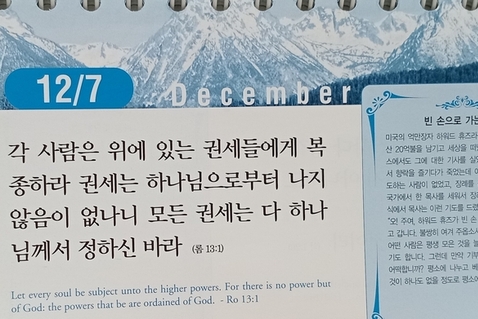 12/7
December
각 사람은 위에 있는 권세들에게 복
종하라 권세는 하나님으로부터 나지
않음이 없나니 모든 권세는 다 하나
님께서 정하신 바라 (롬 13:1)
Let every soul be subject unto the higher powers. For there is no power but
of God: the powers that be are ordained of God. - Ro 13:1
빈 손으로 가는
미국의 억만장자 하워드 휴즈라
산 20억불을 남기고 세상을 떠
스에서도 그에 대한 기사를 실
서 향락을 즐기다가 죽었는데
도하는 사람이 없었고, 장례를
국가에서 한 목사를 세워서 장
식에서 목사는 이런 기도를 드렸
"오! 주여, 하워드 휴즈가 빈 손
고 갑니다. 불쌍히 여겨 주옵소
어떤 사람은 평생 모은 것을
기도 합니다. 그런데 만약 기부
어떡합니까? 평소에 나누고 베
것이 하나도 없을 정도로 평소에